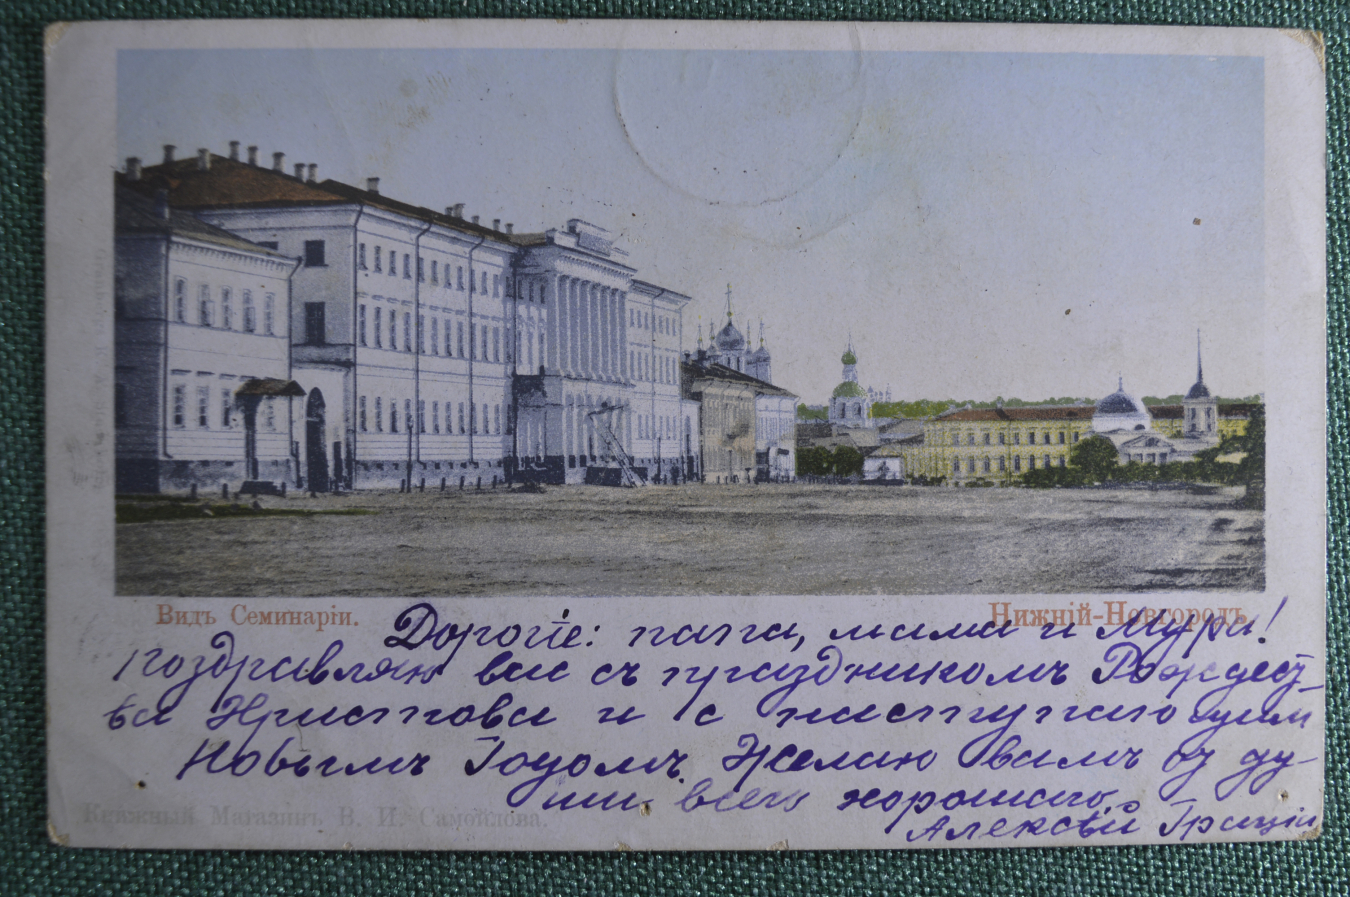 Видъ Семинаріи.
Нижній-Новгородъ.
Дорогіе: папа, мама и Мура!
поздравляю вас съ праздникомъ Рождест-
ва Христова и с наступающим
Новымъ Годомъ. Желаю вамъ от ду-
ши всего хорошаго.
Алексѣй
Книжный Магазинъ В. И. Самойлова.